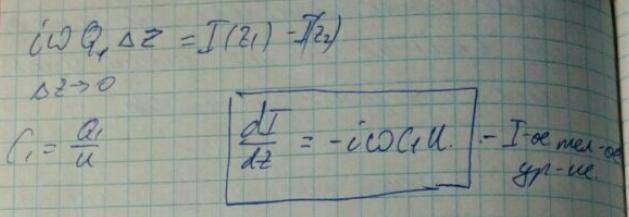 iωQ₁Δz = I(z₁) - I(z₂)
Δz→0
C₁ = Q₁/u
dI/dz = -iωC₁U. - I-ое тел-ое
ур-ие.